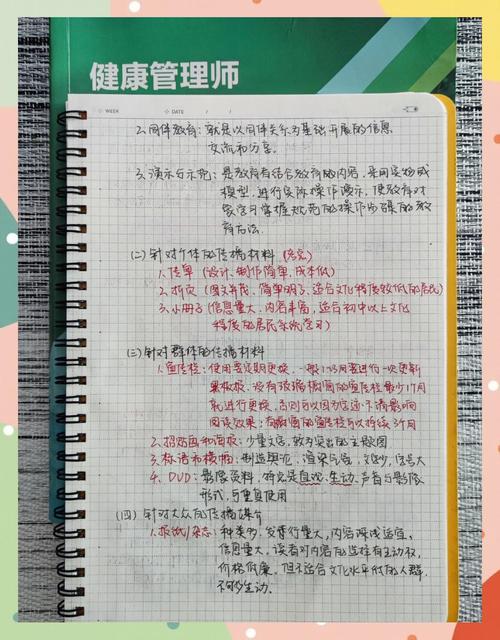 健康管理师
WEEK
DATE / /
2.同伴教育：就是以同伴关系为基础开展的信息
交流和分享。
3.演示与示范：是教育者结合教育的内容，采用实物或
模型，进行实际操作演示，使教育对
象学习掌握规范的操作步骤的教
育方法。
(二)针对个体的传播材料
1.传单（设计、制作简单，成本低）
2.折页（图文并茂、简单明了，适合文化程度较低的居民）
3.小册子（信息量大，内容丰富，适合初中以上文化
程度的居民系统学习）
(三)针对群体的传播材料
1.宣传栏：使用要定期更换，一般1-3月要进行一次更新
黑板报、没有玻璃橱窗的宣传栏最少1个月
就进行更换，否则可以因为字迹不清影响
阅读效果；有橱窗的宣传栏可以持续3个月
2.招贴画和海报：少量文字，较为突出的主题图
3.标语和横幅：制造舆论，渲染气氛，文字少，信号大
4.DVD：影像资料，特点是直观、生动，声音与影像
形式，可重复使用
(四)针对大众的传播媒介
1.报纸/杂志：种类多，发行量大，内容深浅适宜，
信息量大，读者对内容的选择有主动权，
价格低廉，但不适合文化水平低的人群，
不够生动。